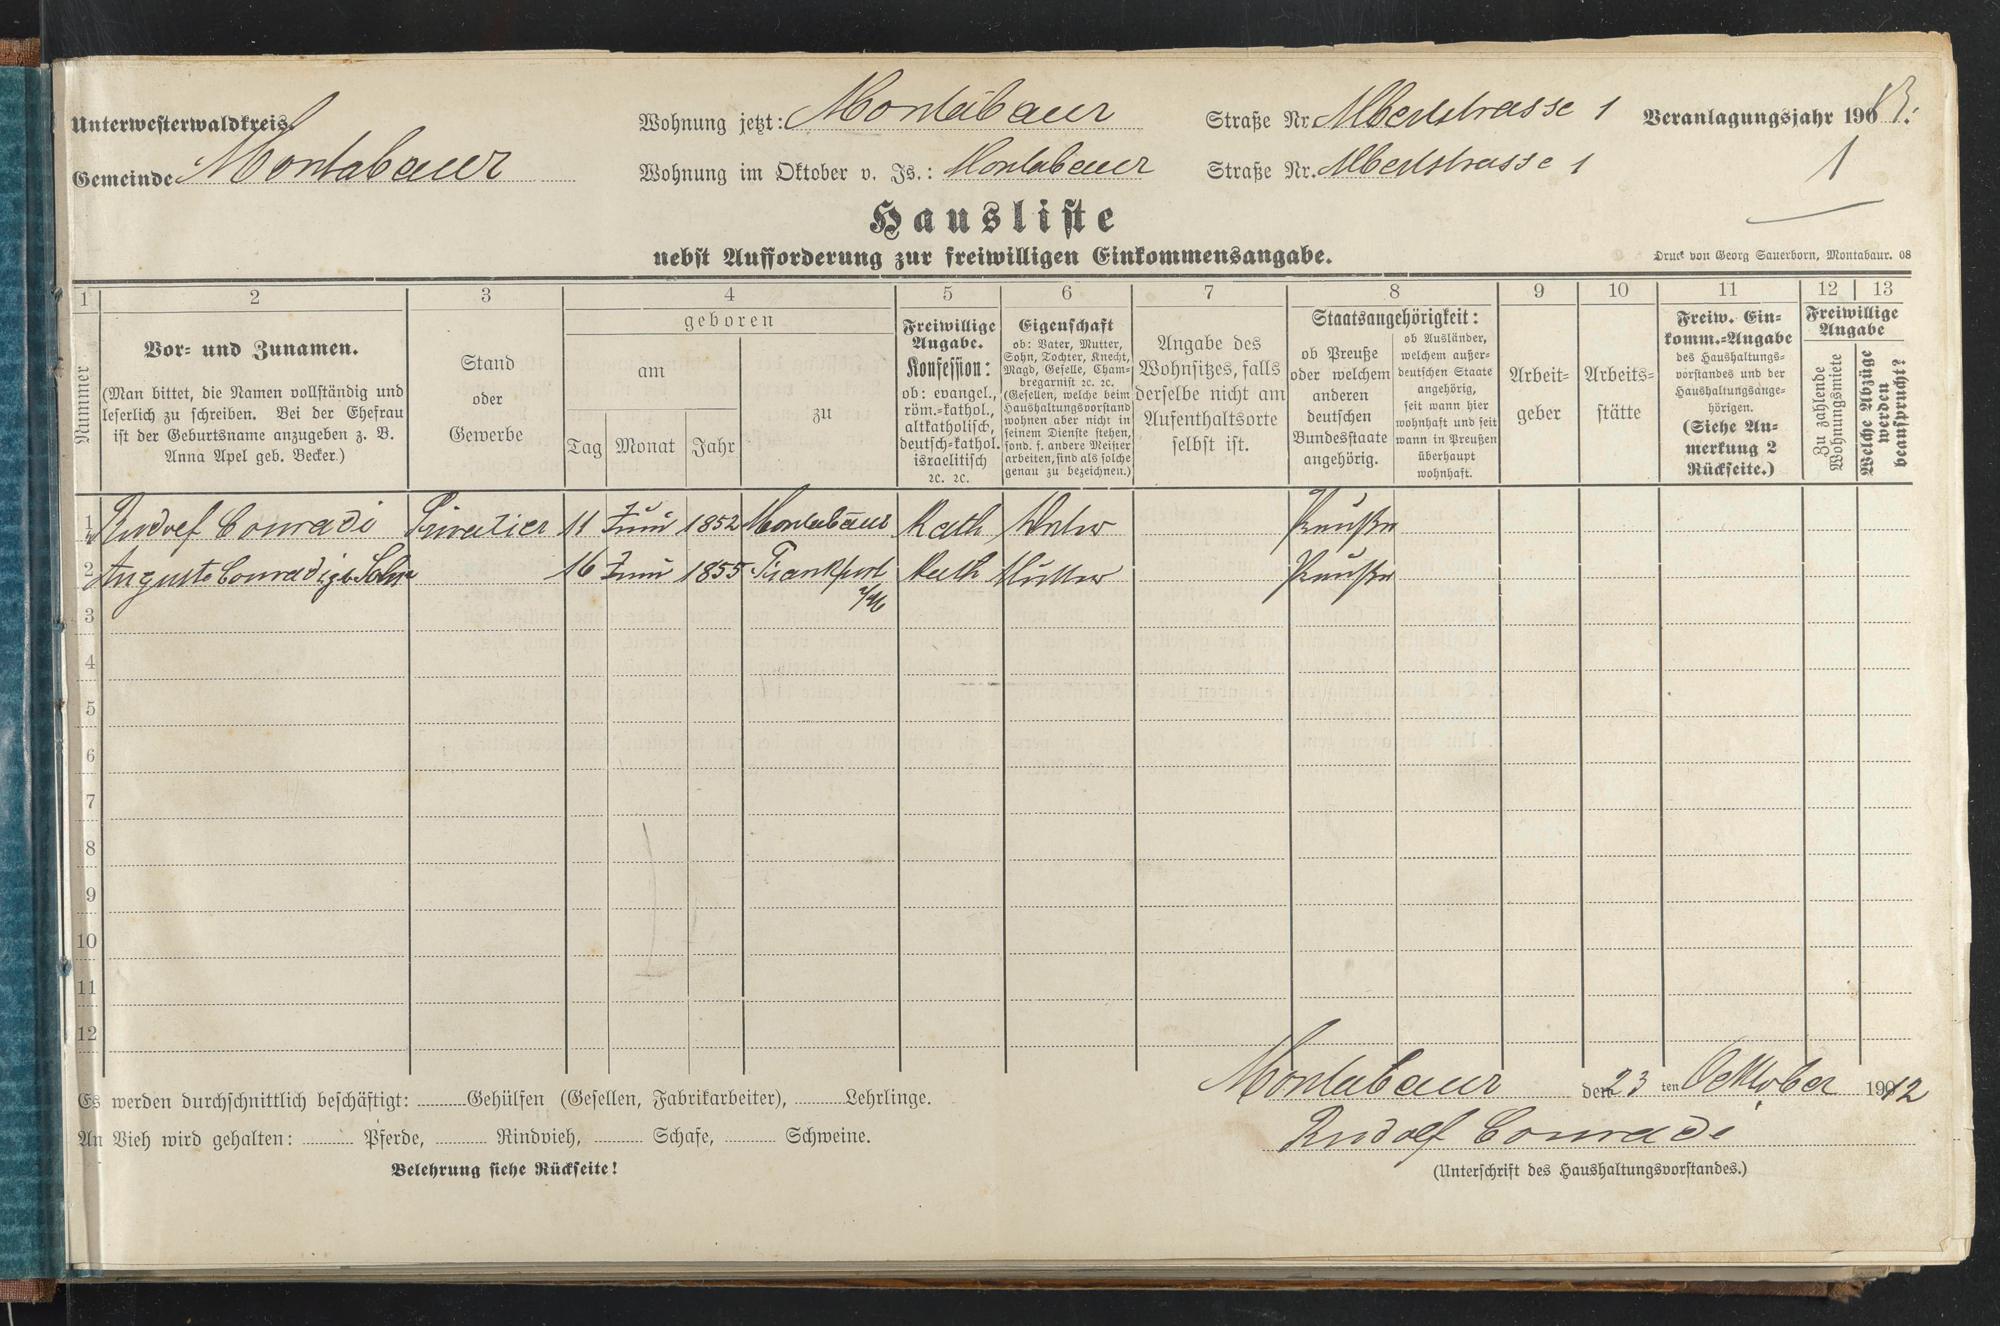 Unterwesterwaldkreis
Gemeinde Montabaur
Wohnung jetzt: Montabaur Straße Nr. Albertstrasse 1 Veranlagungsjahr 1913.
Wohnung im Oktober v. Js.: Montabaur Straße Nr. Albertstrasse 1
1
Hausliste
nebst Aufforderung zur freiwilligen Einkommensangabe.
Druck von Georg Sauerborn, Montabaur. 08
1 2 3 4 5 6 7 8 9 10 11 12 13
Nummer
Vor- und Zunamen.
(Man bittet, die Namen vollständig und
leserlich zu schreiben. Bei der Ehefrau
ist der Geburtsname anzugeben z. B.
Anna Apel geb. Becker.)
Stand
oder
Gewerbe
geboren
am
Tag Monat Jahr
zu
Freiwillige
Angabe.
Konfession:
ob: evangel.,
röm.-kathol.,
altkatholisch,
deutsch-kathol.
israelitisch
ꝛc. ꝛc.
Eigenschaft
ob: Vater, Mutter,
Sohn, Tochter, Knecht,
Magd, Geselle, Cham-
bregarnist ꝛc. ꝛc.
(Gesellen, welche beim
Haushaltungsvorstand
wohnen aber nicht in
seinem Dienste stehen,
sond. f. andere Meister
arbeiten, sind als solche
genau zu bezeichnen.)
Angabe des
Wohnsitzes, falls
derselbe nicht am
Aufenthaltsorte
selbst ist.
Staatsangehörigkeit:
ob Preuße
oder welchem
anderen
deutschen
Bundesstaate
angehörig.
ob Ausländer,
welchem außer-
deutschen Staate
angehörig,
seit wann hier
wohnhaft und seit
wann in Preußen
überhaupt
wohnhaft.
Arbeit-
geber
Arbeits-
stätte
Freiw. Ein-
komm.-Angabe
des Haushaltungs-
vorstandes und der
Haushaltungsange-
hörigen.
(Siehe An-
merkung 2
Rückseite.)
Freiwillige
Angabe
Zu zahlende
Wohnungsmiete
Welche Abzüge
werden
beansprucht?
1 Rudolf Conradi Privatier 11 Juni 1852 Montabaur Kath Vater Preuße
2 Auguste Conradi geb. 16 Juni 1855 Frankfurt Kath Mutter Preuße
a/M
3
4
5
6
7
8
9
10
11
12
Es werden durchschnittlich beschäftigt: Gehülfen (Gesellen, Fabrikarbeiter), Lehrlinge.
An Vieh wird gehalten: Pferde, Rindvieh, Schafe, Schweine.
Belehrung siehe Rückseite!
Montabaur den 23 ten Oktober 1912
Rudolf Conradi
(Unterschrift des Haushaltungsvorstandes.)